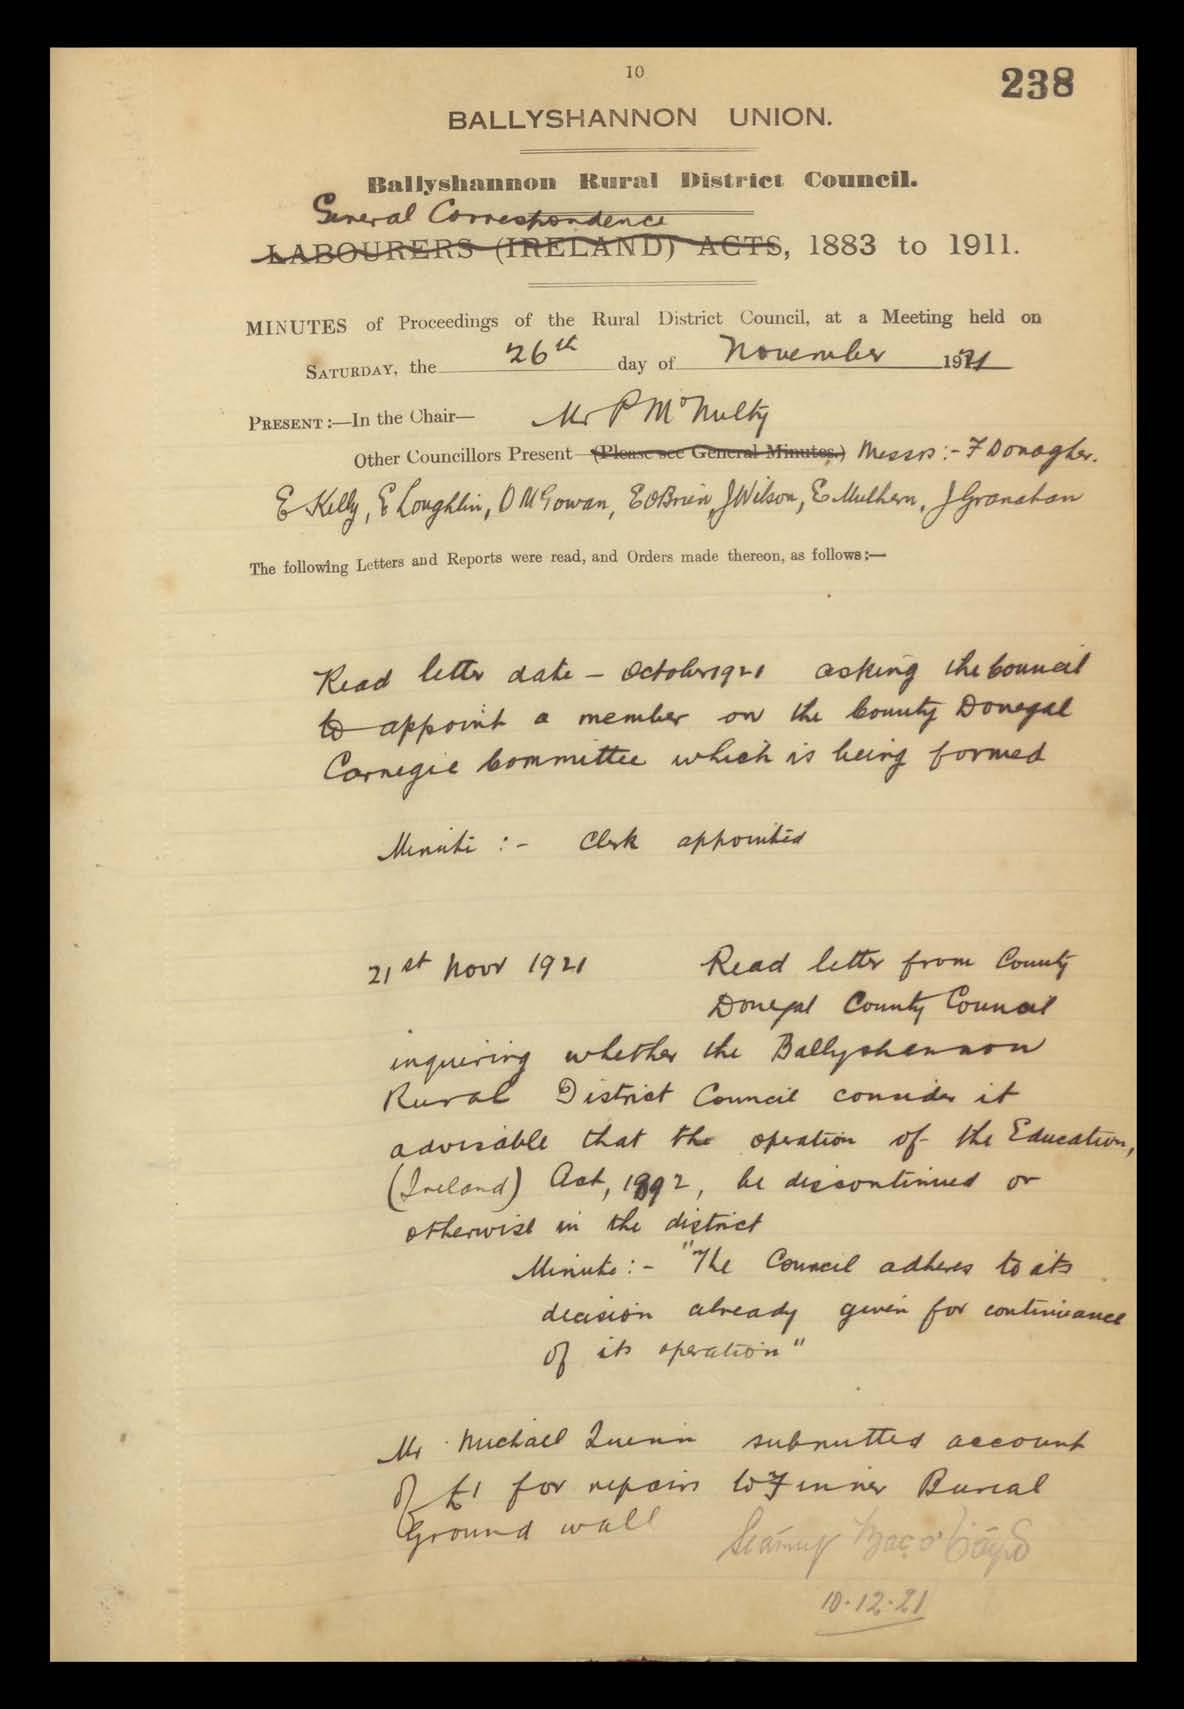 10
238
BALLYSHANNON UNION.
Ballyshannon Rural District Council.
General Correspondence
LABOURERS (IRELAND) ACTS, 1883 to 1911.
MINUTES of Proceedings of the Rural District Council, at a Meeting held on
SATURDAY, the 26th day of November 1921
PRESENT :—In the Chair— Mr P McNulty
Other Councillors Present—(Please see General Minutes.) Messrs :- F Donagher.
E Kelly, E Loughlin, D McGowan, E O'Brien, J Wilson, E Mulhern, J Granahan
The following Letters and Reports were read, and Orders made thereon, as follows :—
Read letter date - October 1921 asking the Council
to appoint a member on the County Donegal
Carnegie Committee which is being formed
Minute :- Clerk appointed
21st Novr 1921 Read letter from County
Donegal County Council
inquiring whether the Ballyshannon
Rural District Council consider it
advisable that the operation of the Education,
(Ireland) Act, 1892, be discontinued or
otherwise in the district
Minute :- "The Council adheres to its
decision already given for continuance
of its operation"
Mr Michael Quinn submitted account
of £1 for repairs to Finner Burial
Ground wall
10.12.21